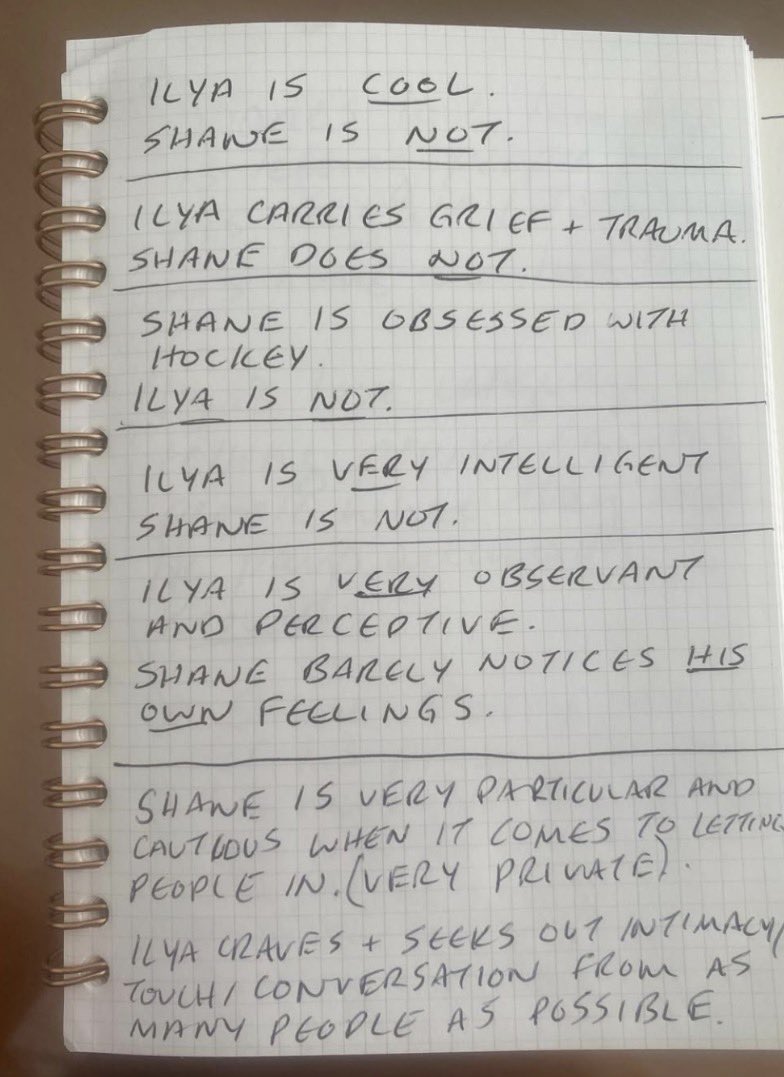 ILYA IS COOL.
SHANE IS NOT.
ILYA CARRIES GRIEF + TRAUMA.
SHANE DOES NOT.
SHANE IS OBSESSED WITH
HOCKEY.
ILYA IS NOT.
ILYA IS VERY INTELLIGENT
SHANE IS NOT.
ILYA IS VERY OBSERVANT
AND PERCEPTIVE.
SHANE BARELY NOTICES HIS
OWN FEELINGS.
SHANE IS VERY PARTICULAR AND
CAUTIOUS WHEN IT COMES TO LETTING
PEOPLE IN. (VERY PRIVATE).
ILYA CRAVES + SEEKS OUT INTIMACY/
TOUCH/ CONVERSATION FROM AS
MANY PEOPLE AS POSSIBLE.